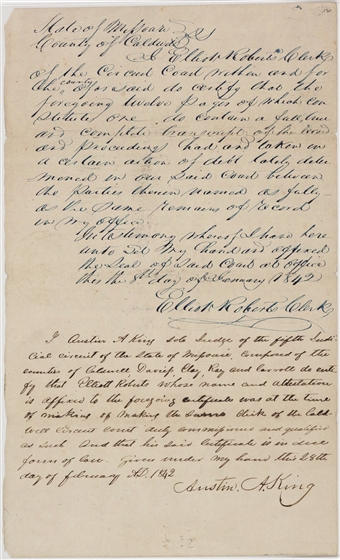 State of Missouri
County of Caldwell
I Elliott Roberts Clerk
of the Circuit Court within and for
the county aforesaid do certify that the
foregoing twelve pages of which con
stitutes one do contain a full true
and complete transcript of the record
and proceedings had and taken in
a certain action of debt lately deter
mined in our said Court between
the Parties therein named as fully
as the same remains of record
in my office
In testimony whereof I have here
unto set my hand and affixed
the seal of said Court at office
this the 8th day of January 1842
Elliott Roberts Clerk
I Austin A King sole Judge of the fifth Judi
cial circuit of the State of Missouri, composed of the
counties of Caldwell Daviess Clay, Ray and Carroll do certi
fy that Elliott Roberts whose name and attestation
is affixed to the foregoing certificate was at the time
of making of making the same Clerk of the Cald
well Circuit court duly commissioned and qualified
as such And that his said Certificate is in due
form of law. Given under my hand this 28th
day of february AD. 1842
Austin A. King